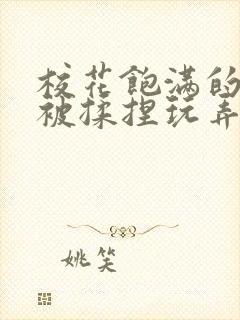 校花飽满的
被揉捏玩弄
姚笑